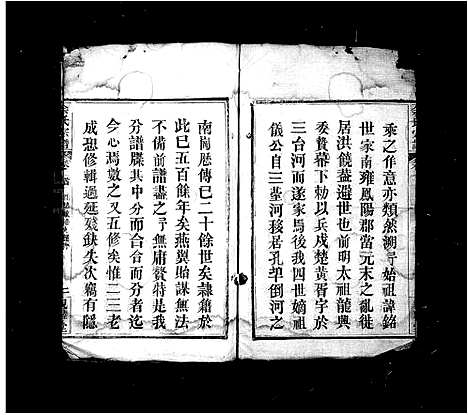 乘之作意亦類然溯子始祖諱銘
世家南雍鳳陽郡當元末之亂徙
居洪饒蓋避世也前明太祖龍興
委贄幕下勅以兵戍楚黃胥宇於
三台河而遂家焉後我四世嫡祖
儀公自三臺河移居孔阜倒河之
南崗歷傳巳二十餘世矣隸籍於
此巳五百餘年矣燕翼貽謀無法
不備前譜盡之子無庸贅特是我
分譜牒其中分而合合而分者迄
今心焉數之又五修矣惟二三老
成想修輯過延殘缺失次竊有隱
氏宗譜